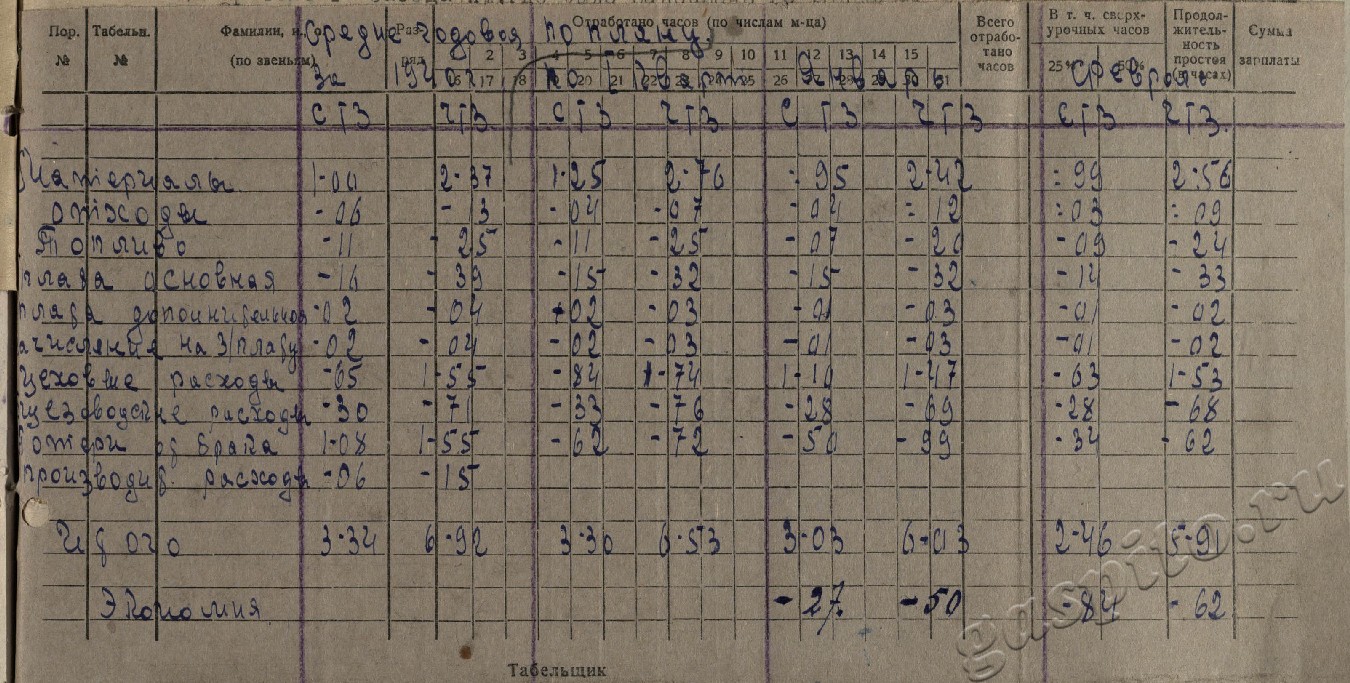 Пор. № Табельн. № Фамилии, и., о. (по звеньям) Раз- ряд Отработано часов (по числам м-ца) Всего отрабо- тано часов В т. ч. сверх- урочных часов Продол- житель- ность простоя (в часах) Сумма зарплаты
1 2 3 4 5 6 7 8 9 10 11 12 13 14 15
16 17 18 19 20 21 22 23 24 25 26 27 28 29 30 31 25% 50%
Средне годовая по плану.
За 1940 г. по I кварт. Январь Февраль
СТЗ ЧТЗ СТЗ ЧТЗ СТЗ ЧТЗ СТЗ ЧТЗ.
Материалы 1-00 2-37 1-25 2-76 -95 2-42 -99 2-56
отходы -06 -13 -04 -07 -04 -12 -03 -09
Топливо -11 -25 -11 -25 -07 -20 -09 -24
плата основная -16 -39 -15 -32 -15 -32 -14 -33
плата дополнительная -02 -04 -02 -03 -01 -03 -01 -02
ачисления на З/плату -02 -04 -02 -03 -01 -03 -01 -02
Цеховые расходы -65 1-55 -84 1-74 1-10 1-47 -63 1-53
расходы -30 -71 -33 -76 -28 -69 -28 -68
Потери от брака 1-08 1-55 -62 -72 -50 -99 -34 -62
производит. расходы -06 -15
Итого 3-34 6-92 3-30 6-53 3-03 6-03 2-46 5-91
Экономия -27. -50 -84 -62
Табельщик
gaspito.ru